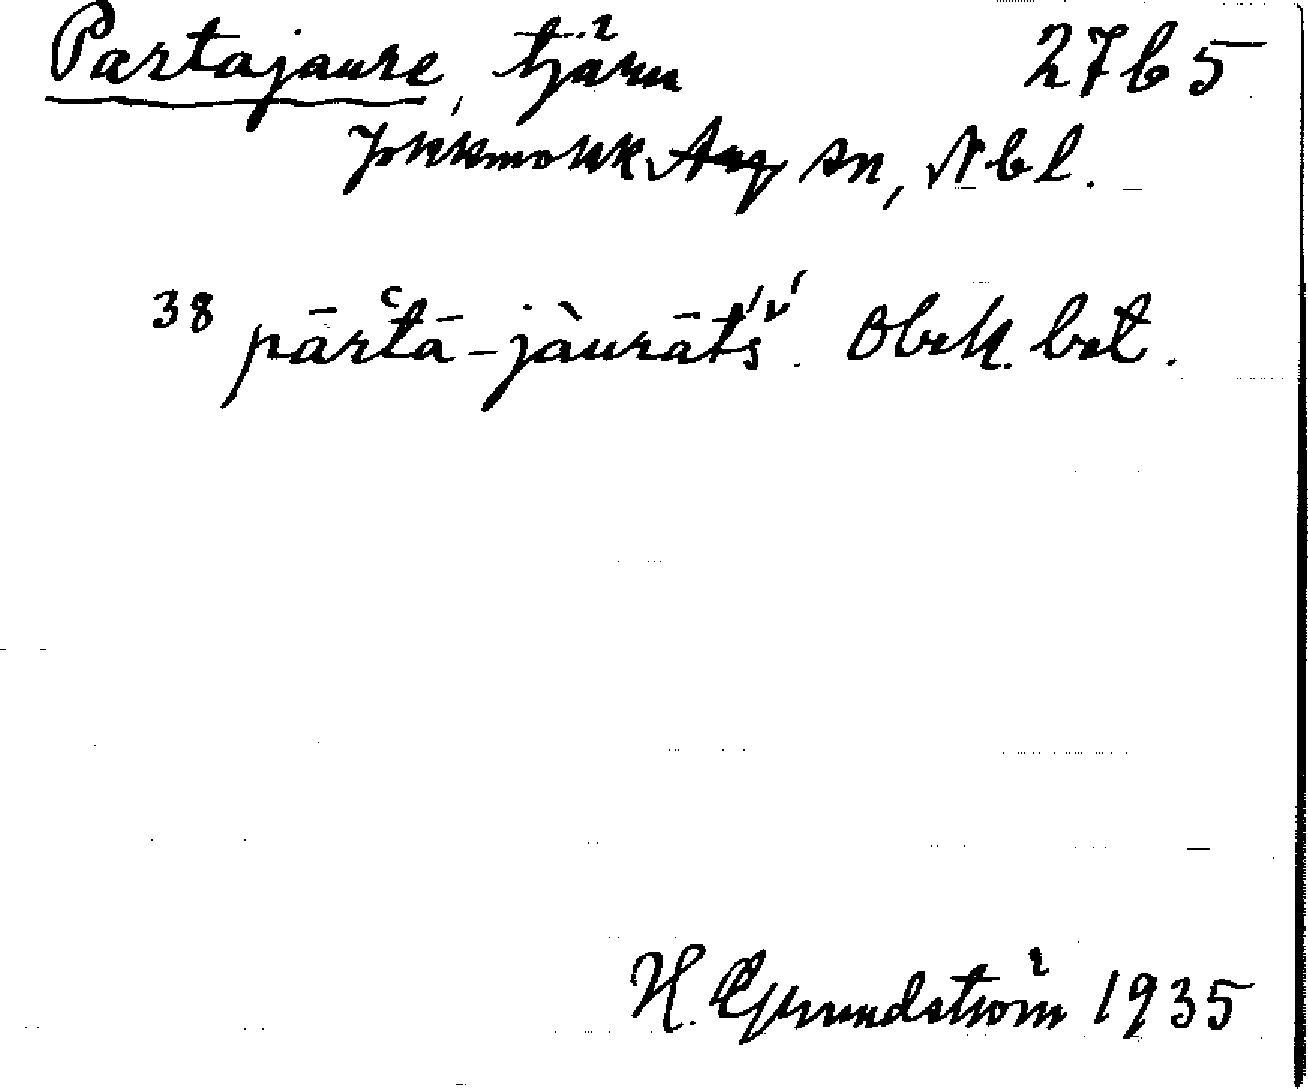 Partajaure, tjärn 27b5
Jokkmokk sn, Nbl.
38 pārʿtā-jàurāts´. Obek. bet.
H. Grundström 1935